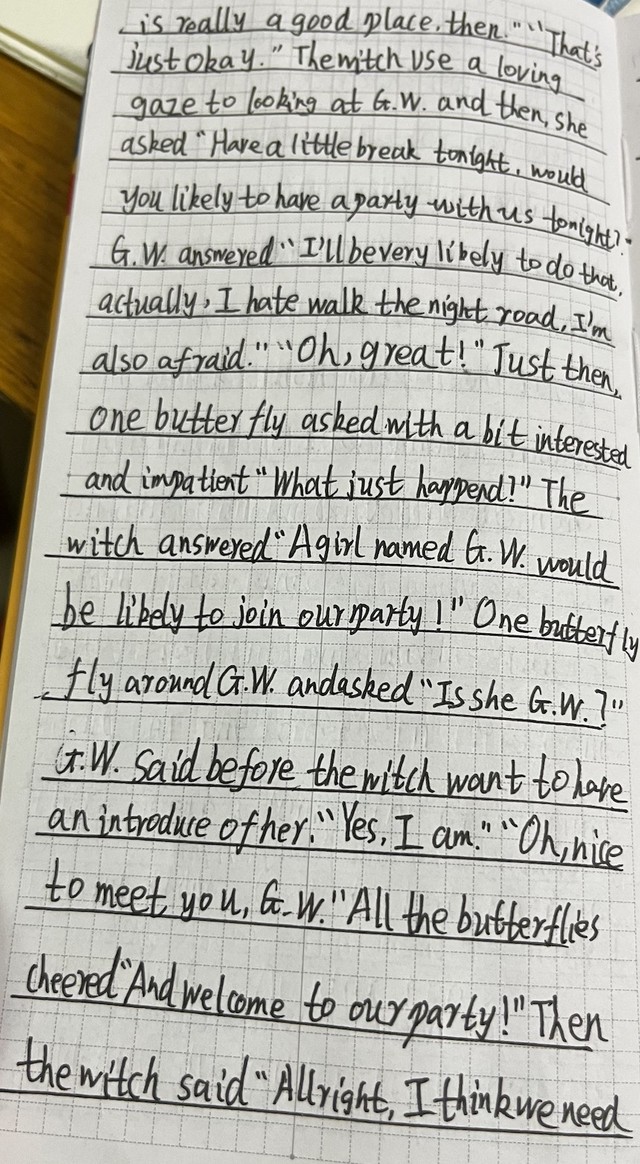 is really a good place, then." "That's
just okay." The witch use a loving
gaze to looking at G.W. and then, she
asked "Have a little break tonight, would
you likely to have a party with us tonight?"
G.W. answered "I'll be very likely to do that,
actually, I hate walk the night road, I'm
also afraid." "Oh, great!" Just then,
one butterfly asked with a bit interested
and impatient "What just happend?" The
witch answered "A girl named G.W. would
be likely to join our party!" One butterfly
fly around G.W. and asked "Is she G.W.?"
G.W. said before the witch want to have
an introduce of her. "Yes, I am." "Oh, nice
to meet you, G.W." All the butterflies
cheered "And welcome to our party!" Then
the witch said "Allright, I think we need